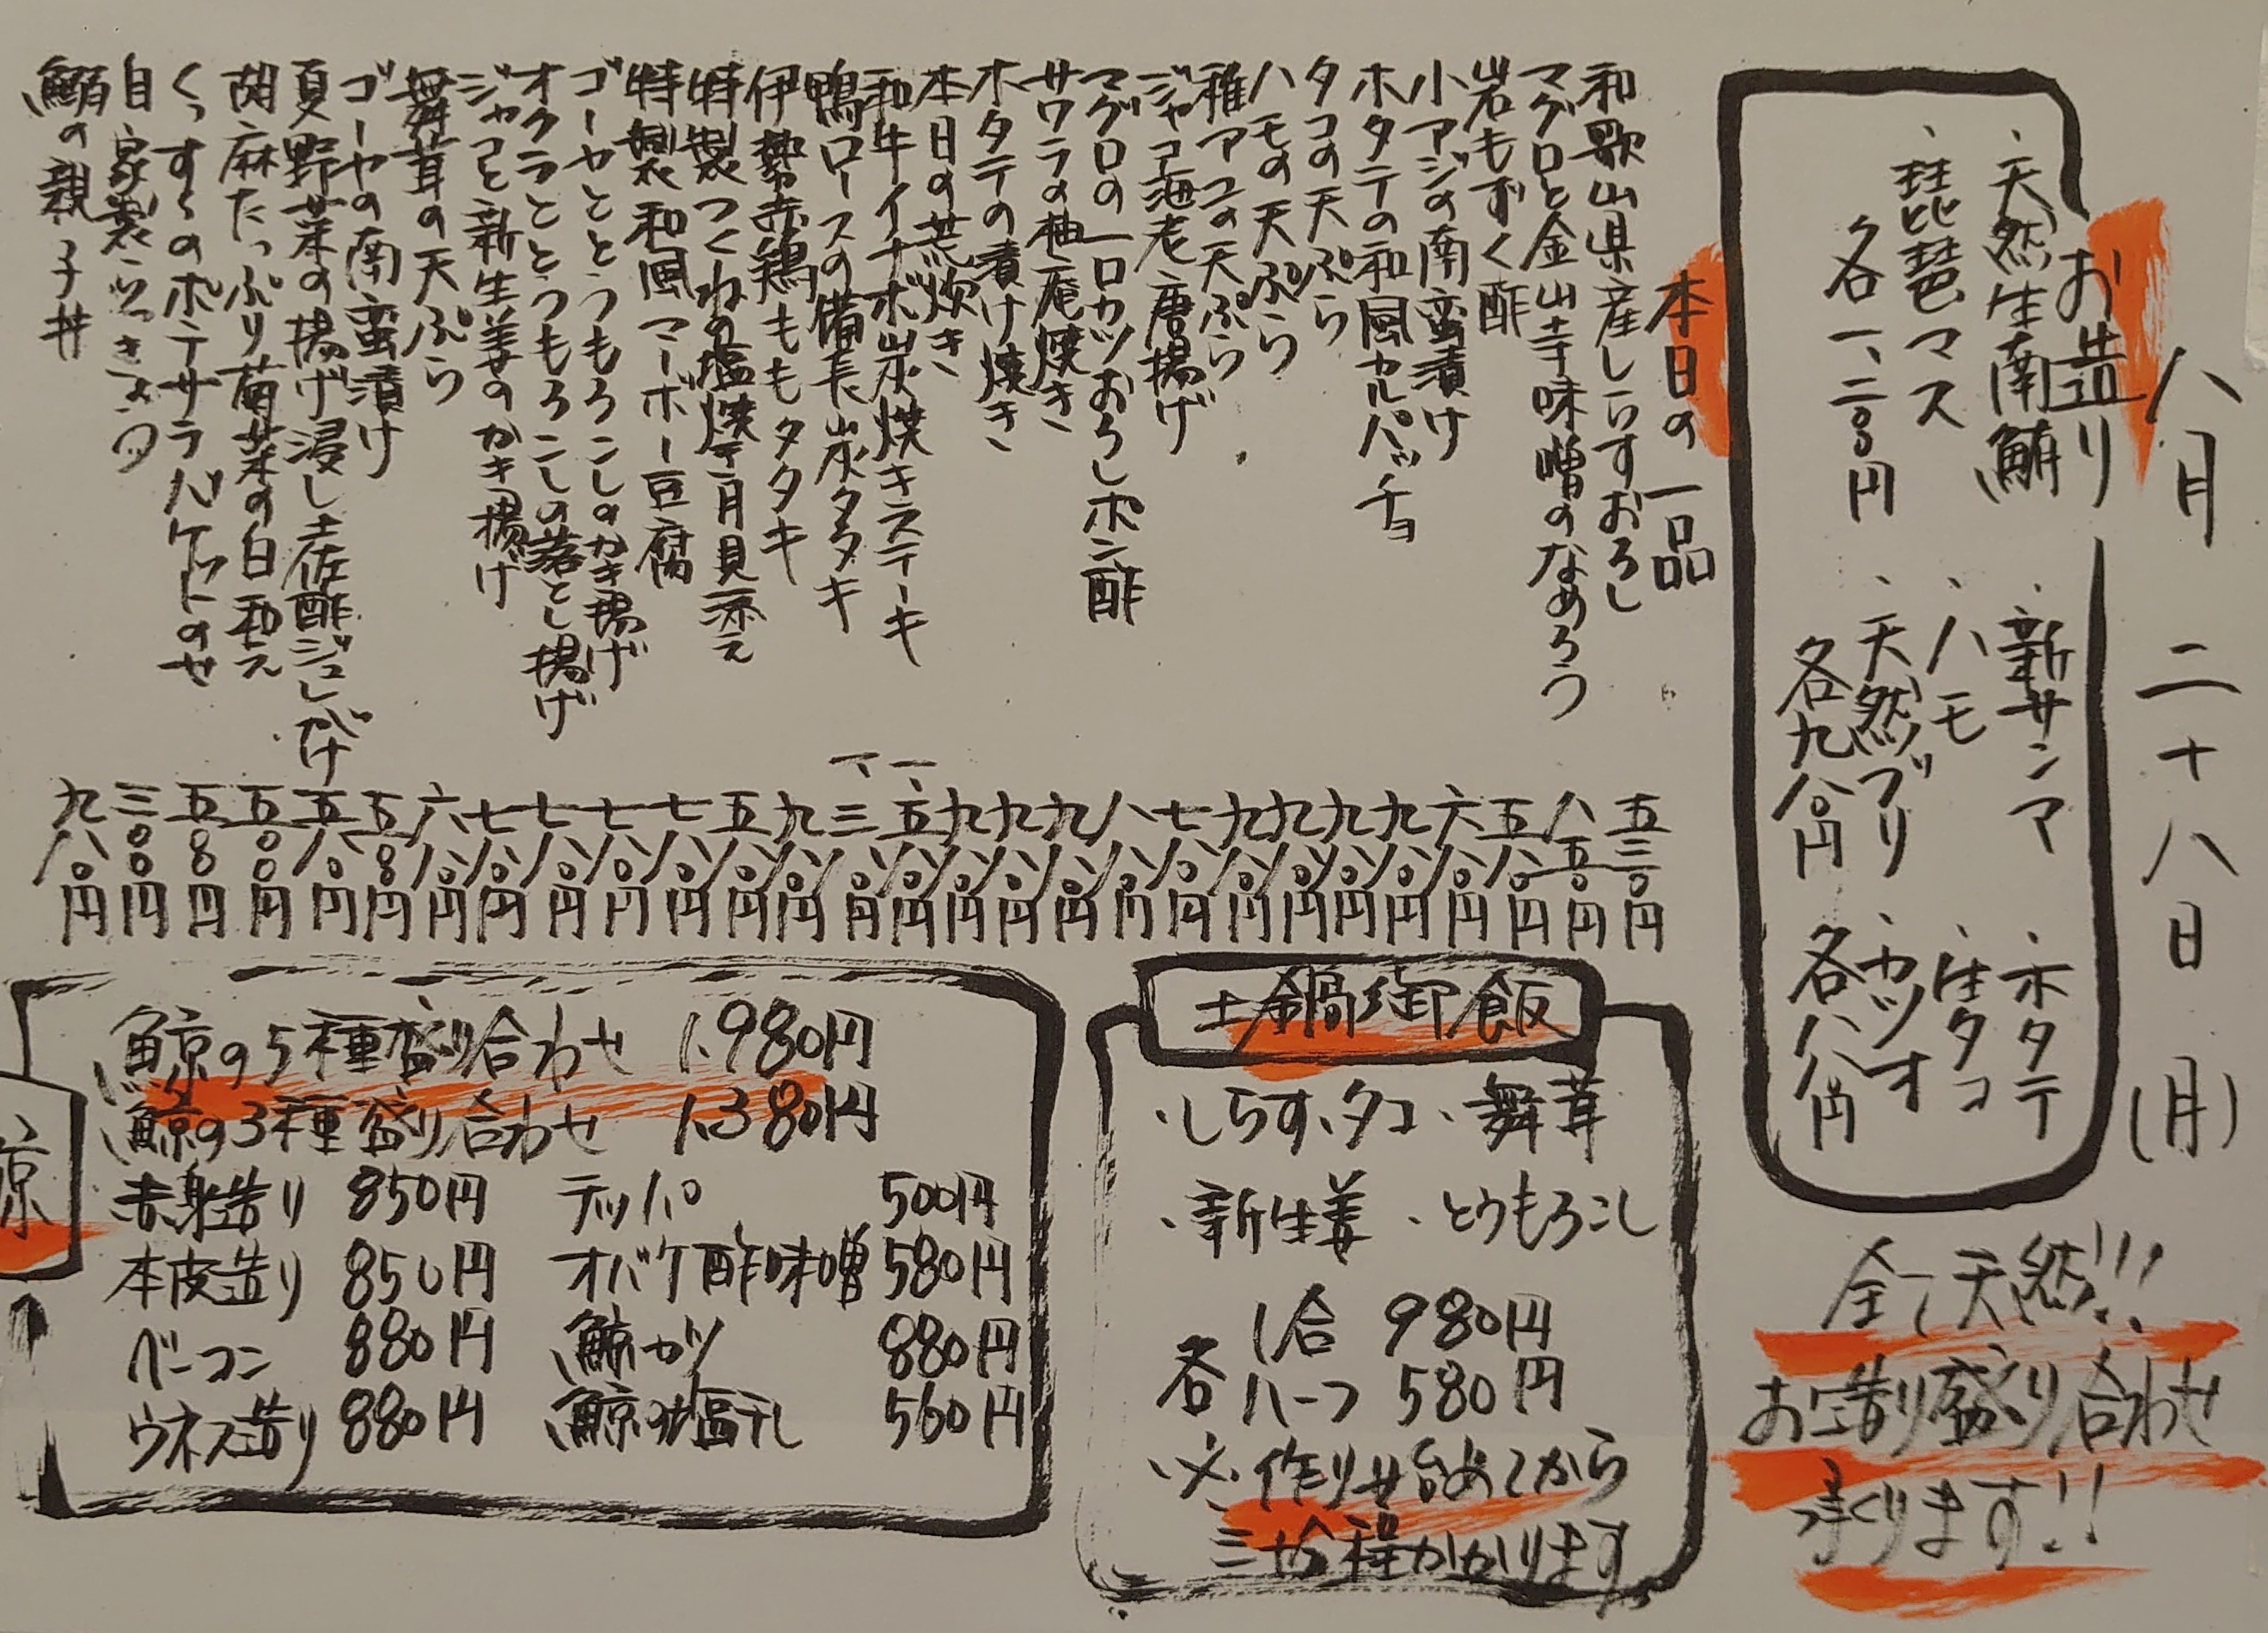 八月二十八日(月)
お造り
、天然生南鮪
、琵琶マス
各一、二〇〇円
、新サンマ
、ハモ
、天然ブリ
各九八〇円
、ホタテ
、生タコ
、カツオ
各八八〇円
全て天然!!!
お造り盛り合わせ
承ります!!
本日の一品
和歌山県産しらすおろし 五三〇円
マグロと金山寺味噌のなめろう 八五〇円
岩もずく酢 五八〇円
小アジの南蛮漬け 六八〇円
ホタテの和風カルパッチョ 九八〇円
タコの天ぷら 九八〇円
ハモの天ぷら 九八〇円
稚アユの天ぷら 九八〇円
ジャコ海老唐揚げ 七八〇円
マグロの一口カツおろしポン酢 八八〇円
サワラの柚庵焼き 九八〇円
ホタテの漬け焼き 九八〇円
本日の荒炊き 九八〇円
和牛イチボ炭焼きステーキ 一、五八〇円
鴨ロースの備長炭タタキ 一、三八〇円
伊勢赤鶏ももタタキ 九八〇円
特製つくねの塩焼き月見添え 五八〇円
特製和風マーボー豆腐 七八〇円
ゴーヤととうもろこしのかき揚げ 七八〇円
オクラととうもろこしの落とし揚げ 七八〇円
ジャコと新生姜のかき揚げ 七八〇円
舞茸の天ぷら 六八〇円
ゴーヤの南蛮漬け 五八〇円
夏野菜の揚げ浸し土佐酢ジュレがけ 五八〇円
胡麻たっぷり菊菜の白和え 五五〇円
くっすぐのポテサラバケットのせ 五八〇円
自家製らっきょう 三〇〇円
鮪の親子丼 九八〇円
土鍋御飯
・しらす・タコ・舞茸
・新生姜・とうもろこし
各 1合 980円
ハーフ 580円
※作り始めてから
三十分程かかります
鯨の5種盛り合わせ 1,980円
鯨の3種盛り合わせ 1,380円
赤身造り 850円 テッパ 500円
本皮造り 850円 オバケ酢味噌 580円
ベーコン 880円 鯨カツ 880円
ウネス造り 880円 鯨の塩干し 560円